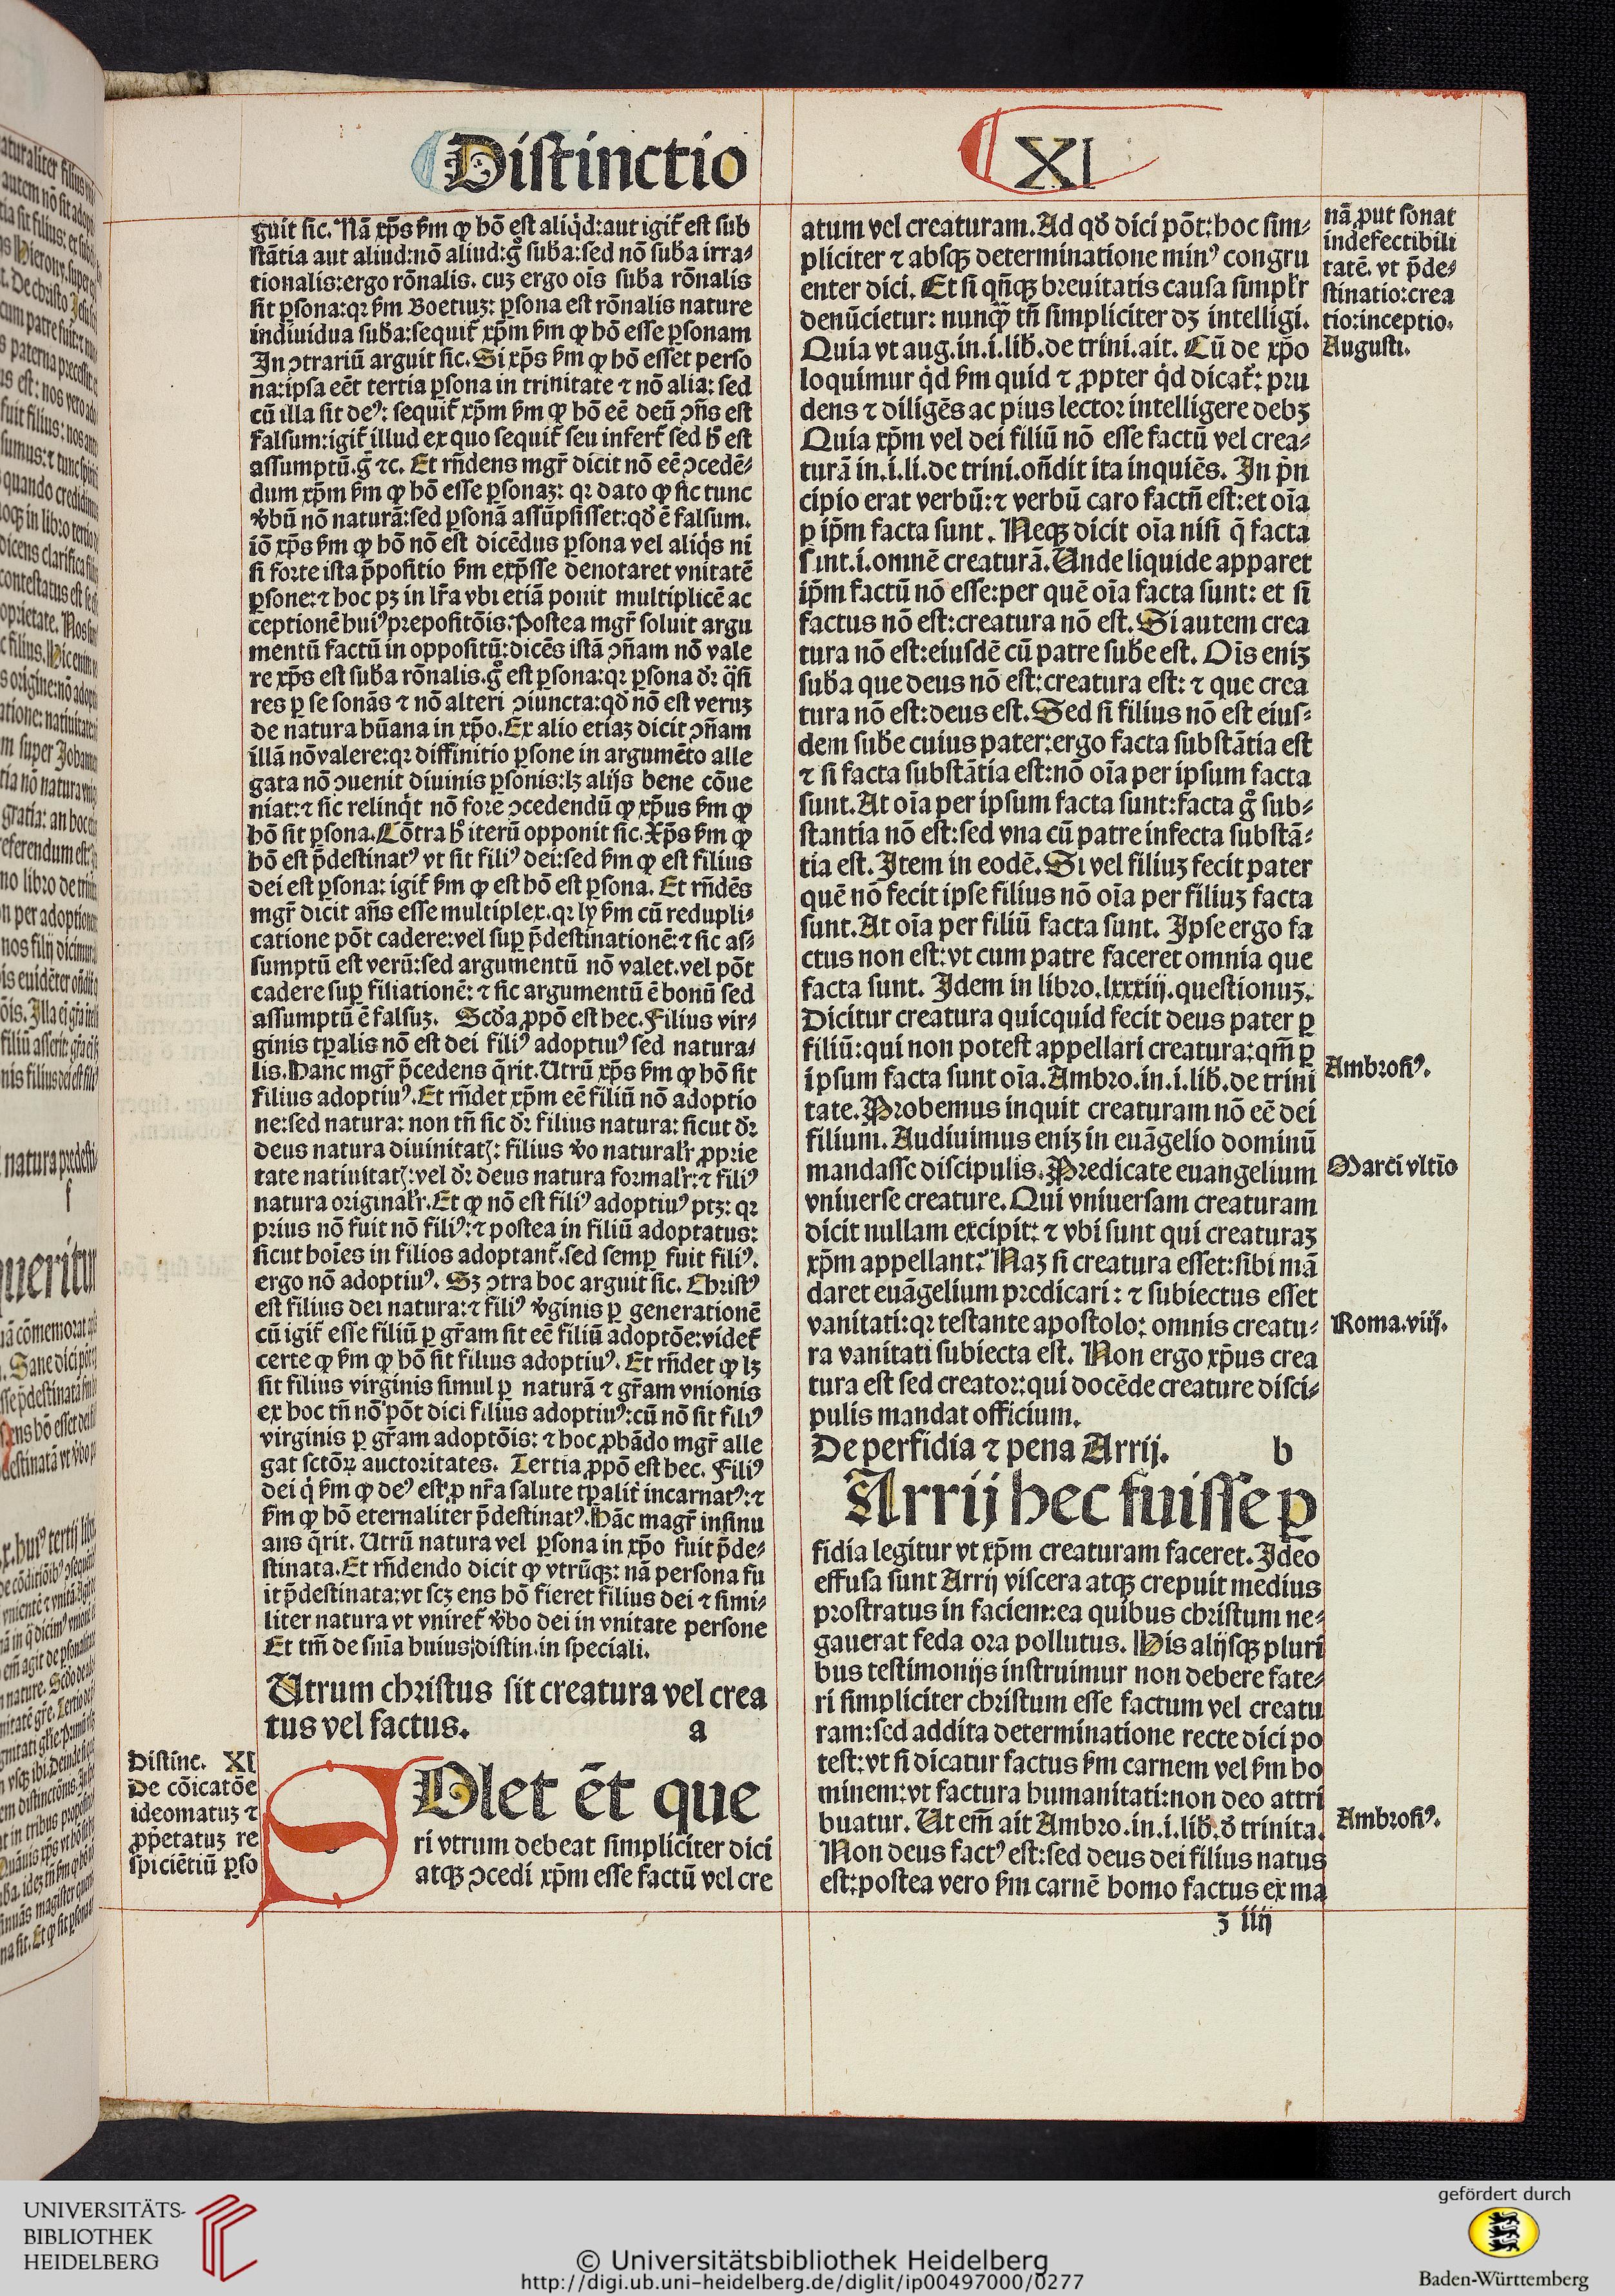 Distinctio XI
guit sic. Nā xp̄s ẜm ꝙ hō est aliq̇d: aut igit̄ est sub
stātia aut aliud: nō aliud: gͦ suba: sed nō suba irra⸗
tionalis: ergo rōnalis. cuꝫ ergo oīs suba rōnalis
sit ꝑsona: qꝛ ẜm Boetiuꝫ: ꝑsona est rōnalis nature
indiuidua suba: sequit̄ xp̄m ẜm ꝙ hō esse ꝑsonam
In ↄtrariū arguit sic. Si xp̄s ẜm ꝙ hō esset perso
na: ipsa eēt tertia ꝑsona in trinitate ⁊ nō alia: sed
cū illa sit deꝰ: sequit̄ xp̄m ẜm ꝙ hō eē deū ↄn̄s est
falsum: igit̄ illud ex quo sequit̄ seu infert̄ sed h̄ est
assumptū. g̊ ⁊c. Et rn̄dens mgr̄ dicit nō eē ↄcedē⸗
dum xp̄m ẜm ꝙ hō esse ꝑsonaꝫ: qꝛ dato ꝙ sic tunc
v̄bū nō naturā: sed ꝑsonā assūpsisset: qd̄ ē falsum.
iō xp̄s ẜm ꝙ hō nō est dicēdus ꝑsona vel aliq̇s ni
si forte ista p̄positio ẜm exp̄sse denotaret vnitatē
ꝑsone: ⁊ hoc pꝫ in lr̄a vbi etiā ponit multiplicē ac
ceptionē huiꝰ prepositōis. Postea mgr̄ soluit argu
mentū factū in oppositū: dicēs istā ↄn̄am nō vale
re xp̄s est suba rōnalis. gͦ est ꝑsona: qꝛ ꝑsona dr̄ q̄si
res ꝑ se sonās ⁊ nō alteri ↄiuncta: qd̄ nō est veruꝫ
de natura hūana in xp̄o. Ex alio etiaꝫ dicit ↄn̄am
illā nō valere: qꝛ diffinitio ꝑsone in argumēto alle
gata nō ↄuenit diuinis ꝑsonis: lꝫ alijs bene cōue
niat: ⁊ sic relinq̇t nō fore ↄcedendū ꝙ xp̄us ẜm ꝙ
hō sit ꝑsona. Cōtra h̄ iterū opponit sic. Xp̄s ẜm ꝙ
hō est p̄destinatꝰ vt sit filiꝰ dei: sed ẜm ꝙ est filius
dei est ꝑsona: igit̄ ẜm ꝙ est hō est ꝑsona. Et rn̄dēs
mgr̄ dicit an̄s esse multiplex. qꝛ ly ẜm cū redupli⸗
catione pōt cadere: vel suꝑ p̄destinationē: ⁊ sic as⸗
sumptū est verū: sed argumentū nō valet. vel pōt
cadere suꝑ filiationē: ⁊ sic argumentū ē bonū sed
assumptū ē falsuꝫ. Scd̄a ꝓpō est hec. Filius vir⸗
ginis tꝑalis nō est dei filiꝰ adoptiuꝰ sed natura⸗
lis. Hanc mgr̄ p̄cedens q̄rit. Utrū xp̄s ẜm ꝙ hō sit
filius adoptiuꝰ. Et rn̄det xp̄m eē filiū nō adoptio
ne: sed natura: non tn̄ sic dr̄ filius natura: sicut dr̄
deus natura diuinitatꝭ: filius v̄o naturalr̄ ꝓprie
tate natiuitatꝭ: vel dr̄ deus natura formalr̄: ⁊ filiꝰ
natura originalr̄. Et ꝙ nō est filiꝰ adoptiuꝰ ptꝫ: qꝛ
prius nō fuit nō filiꝰ: ⁊ postea in filiū adoptatus:
sicut hoīes in filios adoptant̄. sed semꝑ fuit filiꝰ.
ergo nō adoptiuꝰ. Sꝫ ↄtra hoc arguit sic. Christꝰ
est filius dei natura: ⁊ filiꝰ v̄ginis ꝑ generationē
cū igit̄ esse filiū ꝑ gr̄am sit eē filiū adoptōe: videt̄
certe ꝙ ẜm ꝙ hō sit filius adoptiuꝰ. Et rn̄det ꝙ lꝫ
sit filius virginis simul ꝑ naturā ⁊ gr̄am vnionis
ex hoc tn̄ nō pōt dici filius adoptiuꝰ: cū nō sit filiꝰ
virginis ꝑ gr̄am adoptōis: ⁊ hoc ꝓbādo mgr̄ alle
gat sctōꝝ auctoritates. Tertia ꝓpō est hec. Filiꝰ
dei q̇ ẜm ꝙ deꝰ est ꝑ nr̄a salute tꝑalit̄ incarnatꝰ: ⁊
ẜm ꝙ hō eternaliter p̄destinatꝰ. Hāc magr̄ insinu
ans q̄rit. Utrū natura vel ꝑsona in xp̄o fuit p̄de⸗
stinata. Et rn̄dendo dicit ꝙ vtrūqꝫ: nā persona fu
it p̄destinata: vt scꝫ ens hō fieret filius dei ⁊ simi⸗
liter natura vt vniret̄ v̄bo dei in vnitate persone
Et tm̄ de sn̄ia huius distin. in speciali.
Utrum christus sit creatura vel crea
tus vel factus. a
Distinc. XI
De cōicatōe
ideomatuꝫ ⁊
ꝓp̄etatuꝫ re
spiciētiū ꝑso
SOlet ēt que
ri vtrum debeat simpliciter dici
atqꝫ ↄcedi xp̄m esse factū vel cre
atum vel creaturam. Ad qd̄ dici pōt: hoc sim⸗
pliciter ⁊ absqꝫ determinatione minꝰ congru
enter dici. Et si qn̄qꝫ breuitatis causa simplr̄
denūcietur: nunq̄ꝫ tn̄ simpliciter dꝫ intelligi.
Quia vt aug. in. i. lib̄. de trini. ait. Cū de xp̄o
loquimur q̇d ẜm quid ⁊ ꝓpter q̇d dicat̄: pru
dens ⁊ diligēs ac pius lector intelligere debꝫ
Quia xp̄m vel dei filiū nō esse factū vel crea⸗
turā in. i. li. de trini. on̄dit ita inquiēs. In p̄n
cipio erat verbū: ⁊ verbū caro factū est: et oīa
ꝑ ip̄m facta sunt. Neqꝫ dicit oīa nisi q̄ facta
sunt. i. omnē creaturā. Unde liquide apparet
ip̄m factū nō esse: per quē oīa facta sunt: et si
factus nō est: creatura nō est. Si autem crea
tura nō est: eiusdē cū patre sube est. Oīs eniꝫ
suba que deus nō est: creatura est: ⁊ que crea
tura nō est: deus est. Sed si filius nō est eius⸗
dem sube cuius pater: ergo facta substātia est
⁊ si facta substātia est: nō oīa per ipsum facta
sunt. At oīa per ipsum facta sunt: facta gͦ sub⸗
stantia nō est: sed vna cū patre infecta substā⸗
tia est. Item in eodē. Si vel filiuꝫ fecit pater
quē nō fecit ipse filius nō oīa per filiuꝫ facta
sunt. At oīa per filiū facta sunt. Ipse ergo fa
ctus non est: vt cum patre faceret omnia que
facta sunt. Idem in libro. lxxxiij. questionuꝫ.
Dicitur creatura quicquid fecit deus pater ꝑ
filiū: qui non potest appellari creatura: qm̄ ꝑ
ipsum facta sunt oīa. Ambro. in. i. lib̄. de trini
tate. Probemus inquit creaturam nō eē dei
filium. Audiuimus eniꝫ in euāgelio dominū
mandasse discipulis. Predicate euangelium
vniuerse creature. Qui vniuersam creaturam
dicit nullam excipit: ⁊ vbi sunt qui creaturaꝫ
xp̄m appellant: Naꝫ si creatura esset: sibi mā
daret euāgelium predicari: ⁊ subiectus esset
vanitati: qꝛ testante apostolo: omnis creatu⸗
ra vanitati subiecta est. Non ergo xp̄us crea
tura est sed creator: qui docēde creature disci⸗
pulis mandat officium.
De perfidia ⁊ pena Arrij. b
Arrij hec fuisse ꝑ
fidia legitur vt xp̄m creaturam faceret. Ideo
effusa sunt Arrij viscera atqꝫ crepuit medius
prostratus in faciem: ea quibus christum ne⸗
gauerat feda ora pollutus. His alijsqꝫ pluri
bus testimonijs instruimur non debere fate⸗
ri simpliciter christum esse factum vel creatu
ram: sed addita determinatione recte dici po
test: vt si dicatur factus ẜm carnem vel ẜm ho
minem: vt factura humanitati: non deo attri
buatur. Ut em̄ ait Ambro. in. i. lib̄. d̄ trinita.
Non deus factꝰ est: sed deus dei filius natus
est: postea vero ẜm carnē homo factus ex ma
ꝫ iiij
nā ꝓut sonat
indefectibili
tatē. vt p̄de⸗
stinatio: crea
tio: inceptio.
Augusti.
Ambrosiꝰ.
Marci vltīo
Roma. viij.
Ambrosiꝰ.
UNIVERSITÄTS-
BIBLIOTHEK
HEIDELBERG
© Universitätsbibliothek Heidelberg
http://digi.ub.uni-heidelberg.de/diglit/ip00497000/0277
gefördert durch
Baden-Württemberg